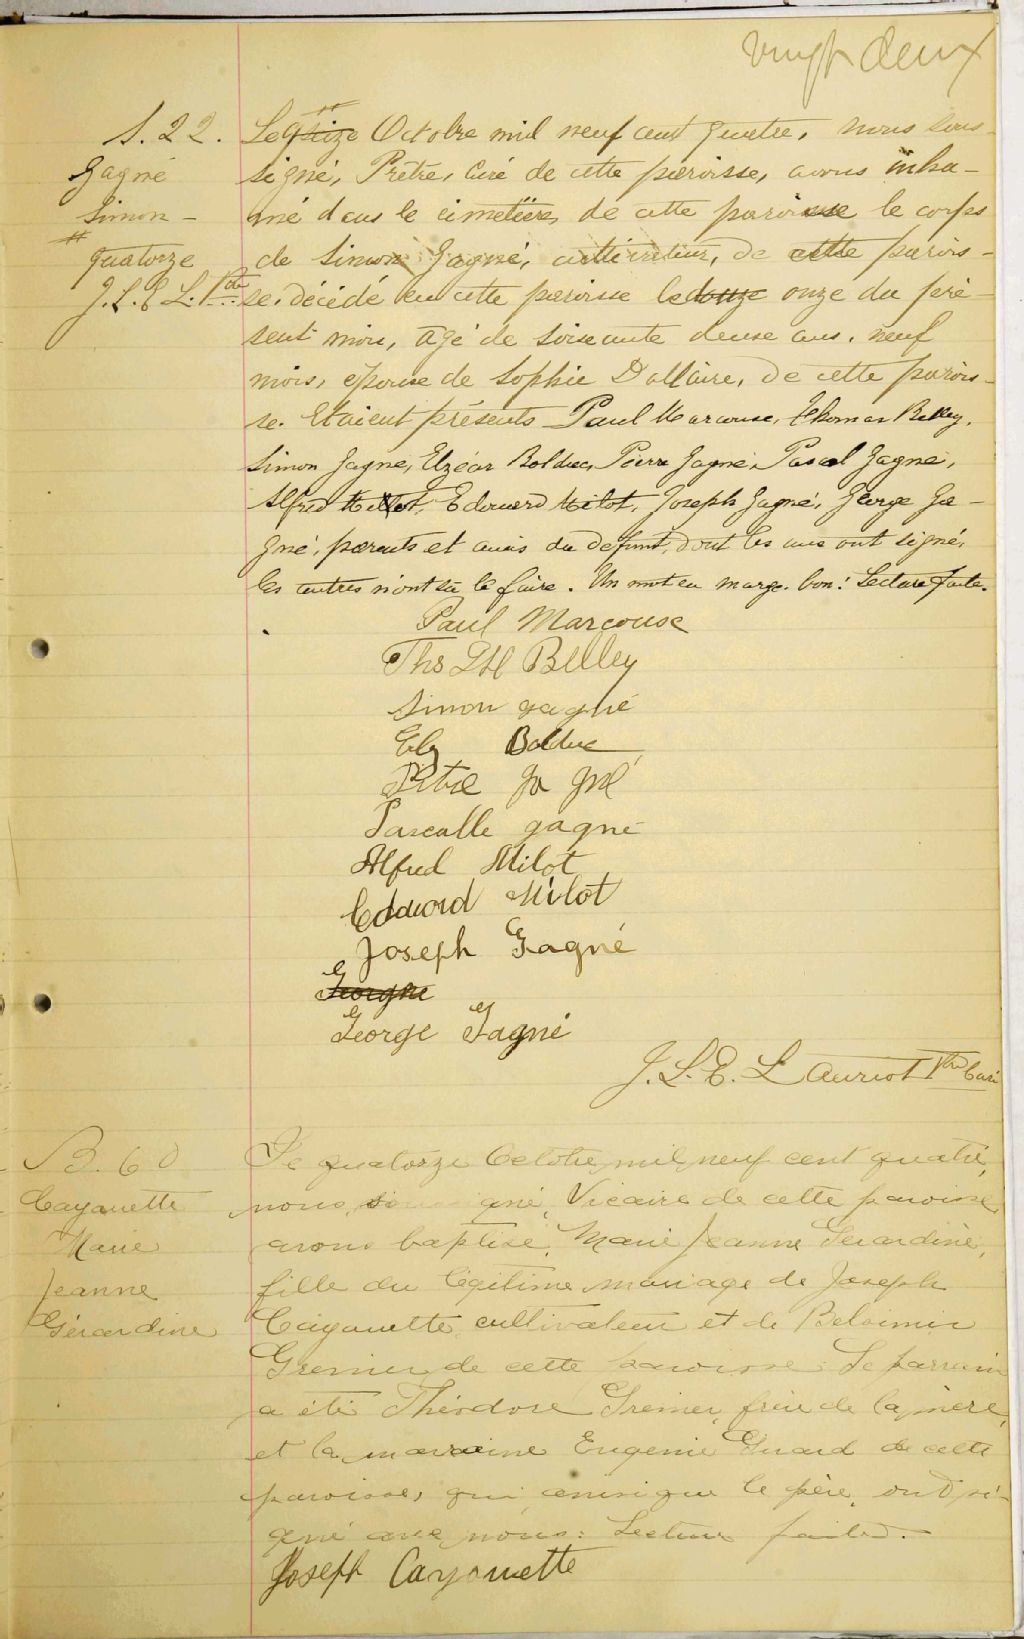 vingt deux
S. 22.
Gagné
Simon -
#
quatorze
J. L. E. L. Ptre
Le seize Octobre mil neuf cent quatre, nous sous-
signé, Prêtre, Curé de cette paroisse, avons inhu-
mé dans le cimetière, de cette paroisse le corps
de Simon Gagné, cultivateur, de cette parois-
se, décédé en cette paroisse le douze onze du pré-
sent mois, âgé de soixante deux ans, neuf
mois, époux de Sophie Dallaire, de cette parois-
se. Etaient présents Paul Marcouse, Thomas Belley,
Simon Gagné, Elzéar Bolduc, Pierre Gagné, Pascal Gagné,
Alfred Milot, Edouard Milot, Joseph Gagné, George Ga-
gné, parents et amis du défunt, dont les uns ont signé,
les autres n'ont su le faire. Un mot en marge bon: Lecture faite.
Paul Marcouse
Ths Belley
Simon gagné
Elz Bolduc
ga gné
Pascalle gagné
Alfred Milot
Edouord Milot
Joseph Gagné
George Gagné
J. L. E. Lauriot Ptre Curé
B. 60
Cayouette
Marie
Jeanne
Gérardine
Le quatorze Octobre mil neuf cent quatre,
nous soussigné, Vicaire de cette paroisse
avons baptisé, Marie Jeanne Gérardine,
fille du légitime mariage de Joseph
Cayouette, cultivateur et de Belzimir
Grenier, de cette paroisse. Le parrain
a été Théodore Grenier, frère de la mère,
et la marraine Eugenie Guard de cette
paroisse, qui ainsi que le père, ont si-
gné avec nous: Lecture faite.
Joseph Cayouette